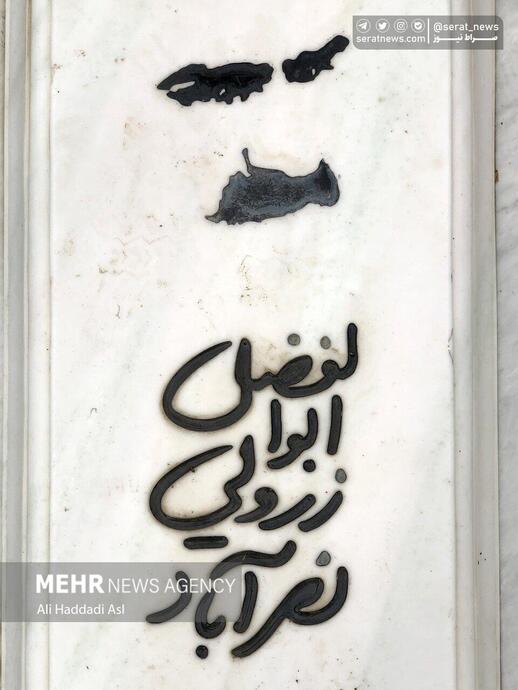 @serat_news
seratnews.com صراط نیوز
لفضل
ابوا
زرویی
نصرآباد
MEHR NEWS AGENCY
Ali Haddadi Asl